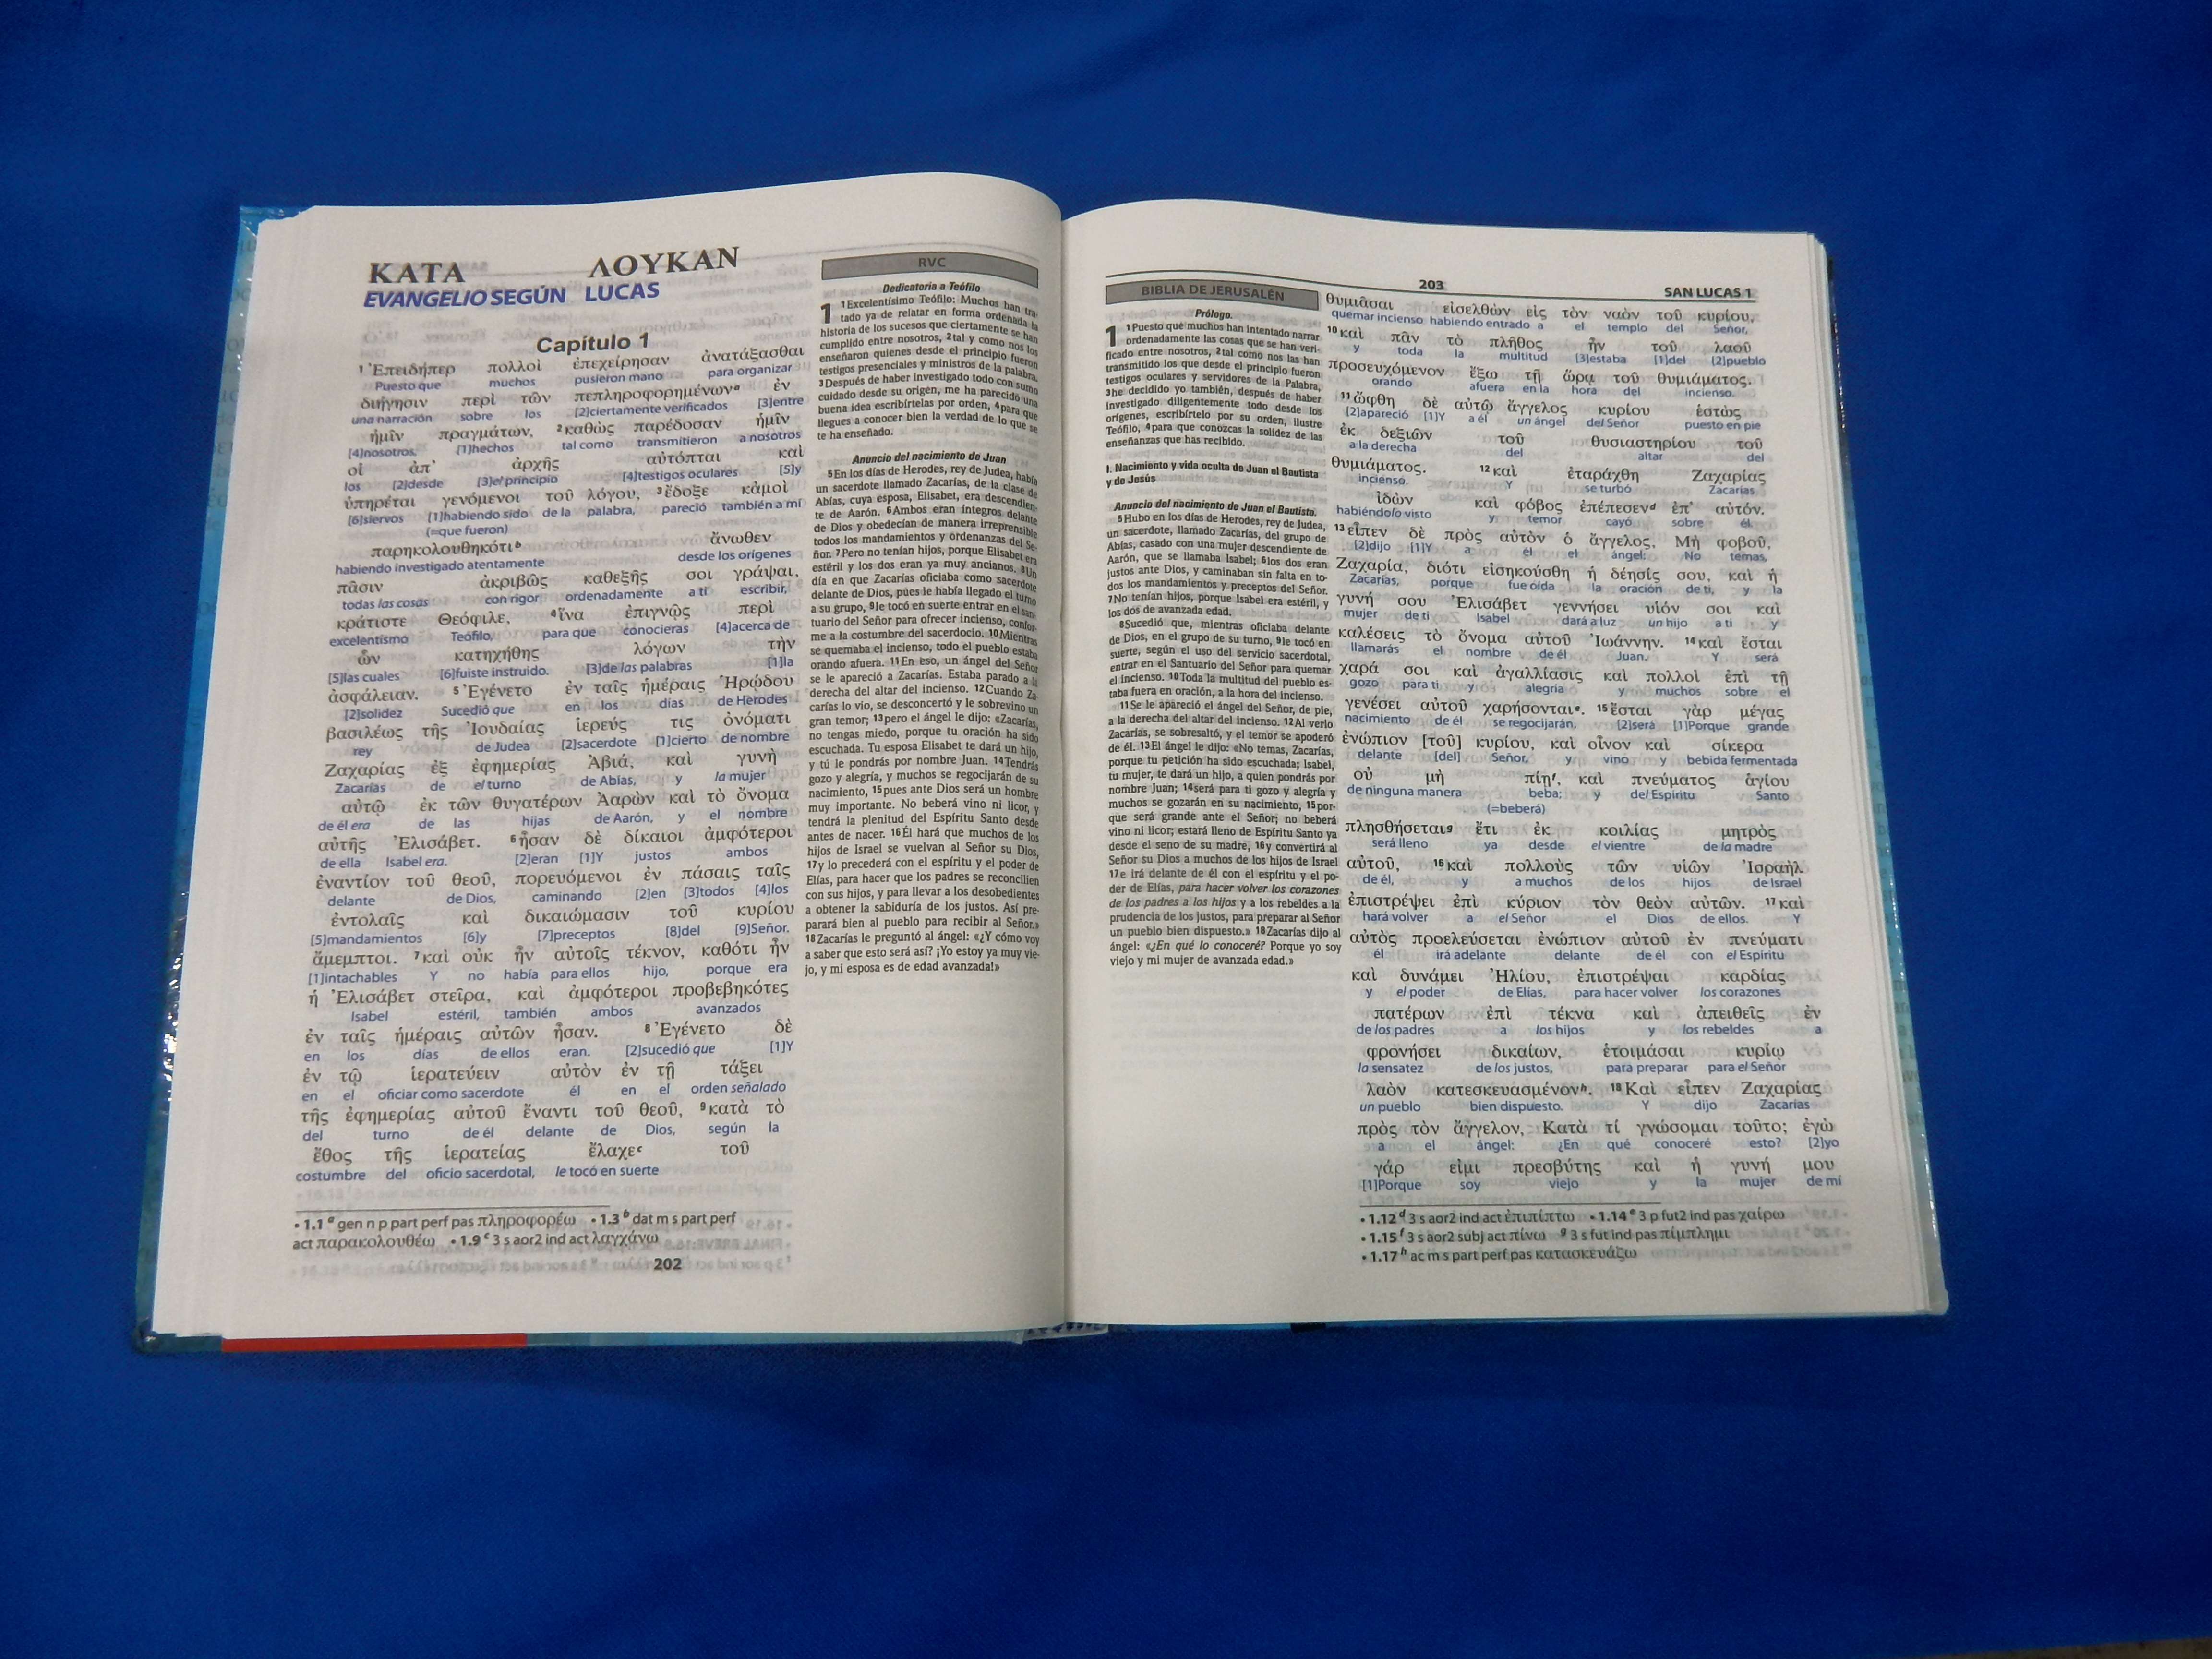 ΚΑΤΑ ΛΟΥΚΑΝ
EVANGELIO SEGÚN LUCAS
Capítulo 1
1 Ἐπειδήπερ πολλοὶ ἐπεχείρησαν ἀνατάξασθαι
Puesto que muchos pusieron mano para organizar
διήγησιν περὶ τῶν πεπληροφορημένωνᵃ ἐν
una narración sobre los [2]ciertamente verificados [3]entre
ἡμῖν πραγμάτων, 2 καθὼς παρέδοσαν ἡμῖν
[4]nosotros, [1]hechos tal como transmitieron a nosotros
οἱ ἀπ' ἀρχῆς αὐτόπται καὶ
los [2]desde [3]el principio [4]testigos oculares [5]y
ὑπηρέται γενόμενοι τοῦ λόγου, 3 ἔδοξε κἀμοὶ
[6]siervos [1]habiendo sido de la palabra, pareció también a mí
(=que fueron)
παρηκολουθηκότιᵇ ἄνωθεν
habiendo investigado atentamente desde los orígenes
πᾶσιν ἀκριβῶς καθεξῆς σοι γράψαι,
todas las cosas con rigor ordenadamente a ti escribir,
κράτιστε Θεόφιλε, 4 ἵνα ἐπιγνῷς περὶ
excelentísimo Teófilo, para que conocieras [4]acerca de
ὧν κατηχήθης λόγων τὴν
[5]las cuales [6]fuiste instruido. [3]de las palabras [1]la
ἀσφάλειαν. 5 Ἐγένετο ἐν ταῖς ἡμέραις Ἡρῴδου
[2]solidez Sucedió que en los días de Herodes
βασιλέως τῆς Ἰουδαίας ἱερεύς τις ὀνόματι
rey de Judea [2]sacerdote [1]cierto de nombre
Ζαχαρίας ἐξ ἐφημερίας Ἀβιά, καὶ γυνὴ
Zacarías de el turno de Abías, y la mujer
αὐτῷ ἐκ τῶν θυγατέρων Ἀαρὼν καὶ τὸ ὄνομα
de él era de las hijas de Aarón, y el nombre
αὐτῆς Ἐλισάβετ. 6 ἦσαν δὲ δίκαιοι ἀμφότεροι
de ella Isabel era. [2]eran [1]Y justos ambos
ἐναντίον τοῦ θεοῦ, πορευόμενοι ἐν πάσαις ταῖς
delante de Dios, caminando [2]en [3]todos [4]los
ἐντολαῖς καὶ δικαιώμασιν τοῦ κυρίου
[5]mandamientos [6]y [7]preceptos [8]del [9]Señor.
ἄμεμπτοι. 7 καὶ οὐκ ἦν αὐτοῖς τέκνον, καθότι ἦν
[1]intachables Y no había para ellos hijo, porque era
ἡ Ἐλισάβετ στεῖρα, καὶ ἀμφότεροι προβεβηκότες
Isabel estéril, también ambos avanzados
ἐν ταῖς ἡμέραις αὐτῶν ἦσαν. 8 Ἐγένετο δὲ
en los días de ellos eran. [2]sucedió que [1]Y
ἐν τῷ ἱερατεύειν αὐτὸν ἐν τῇ τάξει
en el oficiar como sacerdote él en el orden señalado
τῆς ἐφημερίας αὐτοῦ ἔναντι τοῦ θεοῦ, 9 κατὰ τὸ
del turno de él delante de Dios, según la
ἔθος τῆς ἱερατείας ἔλαχεᶜ τοῦ
costumbre del oficio sacerdotal, le tocó en suerte
• 1.1 ᵃ gen n p part perf pas πληροφορέω • 1.3 ᵇ dat m s part perf
act παρακολουθέω • 1.9 ᶜ 3 s aor2 ind act λαγχάνω
202
RVC
Dedicatoria a Teófilo
1 1 Excelentísimo Teófilo: Muchos han tra-
tado ya de relatar en forma ordenada la
historia de los sucesos que ciertamente se han
cumplido entre nosotros, 2 tal y como nos los
enseñaron quienes desde el principio fueron
testigos presenciales y ministros de la palabra.
3 Después de haber investigado todo con sumo
cuidado desde su origen, me ha parecido una
buena idea escribírtelas por orden, 4 para que
llegues a conocer bien la verdad de lo que se
te ha enseñado.
Anuncio del nacimiento de Juan
5 En los días de Herodes, rey de Judea, había
un sacerdote llamado Zacarías, de la clase de
Abías, cuya esposa, Elisabet, era descendien-
te de Aarón. 6 Ambos eran íntegros delante
de Dios y obedecían de manera irreprensible
todos los mandamientos y ordenanzas del Se-
ñor. 7 Pero no tenían hijos, porque Elisabet era
estéril y los dos eran ya muy ancianos. 8 Un
día en que Zacarías oficiaba como sacerdote
delante de Dios, pues le había llegado el turno
a su grupo, 9 le tocó en suerte entrar en el san-
tuario del Señor para ofrecer incienso, confor-
me a la costumbre del sacerdocio. 10 Mientras
se quemaba el incienso, todo el pueblo estaba
orando afuera. 11 En eso, un ángel del Señor
se le apareció a Zacarías. Estaba parado a la
derecha del altar del incienso. 12 Cuando Za-
carías lo vio, se desconcertó y le sobrevino un
gran temor; 13 pero el ángel le dijo: «Zacarías,
no tengas miedo, porque tu oración ha sido
escuchada. Tu esposa Elisabet te dará un hijo,
y tú le pondrás por nombre Juan. 14 Tendrás
gozo y alegría, y muchos se regocijarán de su
nacimiento, 15 pues ante Dios será un hombre
muy importante. No beberá vino ni licor, y
tendrá la plenitud del Espíritu Santo desde
antes de nacer. 16 Él hará que muchos de los
hijos de Israel se vuelvan al Señor su Dios,
17 y lo precederá con el espíritu y el poder de
Elías, para hacer que los padres se reconcilien
con sus hijos, y para llevar a los desobedientes
a obtener la sabiduría de los justos. Así pre-
parará bien al pueblo para recibir al Señor.»
18 Zacarías le preguntó al ángel: «¿Y cómo voy
a saber que esto será así? ¡Yo estoy ya muy vie-
jo, y mi esposa es de edad avanzada!»
203
SAN LUCAS 1
BIBLIA DE JERUSALÉN
Prólogo.
1 1 Puesto que muchos han intentado narrar
ordenadamente las cosas que se han veri-
ficado entre nosotros, 2 tal como nos las han
transmitido los que desde el principio fueron
testigos oculares y servidores de la Palabra,
3 he decidido yo también, después de haber
investigado diligentemente todo desde los
orígenes, escribírtelo por su orden, ilustre
Teófilo, 4 para que conozcas la solidez de las
enseñanzas que has recibido.
I. Nacimiento y vida oculta de Juan el Bautista
y de Jesús
Anuncio del nacimiento de Juan el Bautista.
5 Hubo en los días de Herodes, rey de Judea,
un sacerdote, llamado Zacarías, del grupo de
Abías, casado con una mujer descendiente de
Aarón, que se llamaba Isabel; 6 los dos eran
justos ante Dios, y caminaban sin falta en to-
dos los mandamientos y preceptos del Señor.
7 No tenían hijos, porque Isabel era estéril, y
los dos de avanzada edad.
8 Sucedió que, mientras oficiaba delante
de Dios, en el grupo de su turno, 9 le tocó en
suerte, según el uso del servicio sacerdotal,
entrar en el Santuario del Señor para quemar
el incienso. 10 Toda la multitud del pueblo es-
taba fuera en oración, a la hora del incienso.
11 Se le apareció el ángel del Señor, de pie,
a la derecha del altar del incienso. 12 Al verlo
Zacarías, se sobresaltó, y el temor se apoderó
de él. 13 El ángel le dijo: «No temas, Zacarías,
porque tu petición ha sido escuchada; Isabel,
tu mujer, te dará un hijo, a quien pondrás por
nombre Juan; 14 será para ti gozo y alegría y
muchos se gozarán en su nacimiento, 15 por-
que será grande ante el Señor; no beberá
vino ni licor; estará lleno de Espíritu Santo ya
desde el seno de su madre, 16 y convertirá al
Señor su Dios a muchos de los hijos de Israel
17 e irá delante de él con el espíritu y el po-
der de Elías, para hacer volver los corazones
de los padres a los hijos y a los rebeldes a la
prudencia de los justos, para preparar al Señor
un pueblo bien dispuesto.» 18 Zacarías dijo al
ángel: «¿En qué lo conoceré? Porque yo soy
viejo y mi mujer de avanzada edad.»
θυμιᾶσαι εἰσελθὼν εἰς τὸν ναὸν τοῦ κυρίου,
quemar incienso habiendo entrado a el templo del Señor,
10 καὶ πᾶν τὸ πλῆθος ἦν τοῦ λαοῦ
y toda la multitud [3]estaba [1]del [2]pueblo
προσευχόμενον ἔξω τῇ ὥρᾳ τοῦ θυμιάματος.
orando afuera en la hora del incienso.
11 ὤφθη δὲ αὐτῷ ἄγγελος κυρίου ἑστὼς
[2]apareció [1]Y a él un ángel del Señor puesto en pie
ἐκ δεξιῶν τοῦ θυσιαστηρίου τοῦ
a la derecha del altar del
θυμιάματος. 12 καὶ ἐταράχθη Ζαχαρίας
incienso. Y se turbó Zacarías
ἰδὼν καὶ φόβος ἐπέπεσενᵈ ἐπ' αὐτόν.
habiéndolo visto y temor cayó sobre él.
13 εἶπεν δὲ πρὸς αὐτὸν ὁ ἄγγελος, Μὴ φοβοῦ,
[2]dijo [1]Y a él el ángel: No temas,
Ζαχαρία, διότι εἰσηκούσθη ἡ δέησίς σου, καὶ ἡ
Zacarías, porque fue oída la oración de ti, y la
γυνή σου Ἐλισάβετ γεννήσει υἱόν σοι καὶ
mujer de ti Isabel dará a luz un hijo a ti y
καλέσεις τὸ ὄνομα αὐτοῦ Ἰωάννην. 14 καὶ ἔσται
llamarás el nombre de él Juan. Y será
χαρά σοι καὶ ἀγαλλίασις καὶ πολλοὶ ἐπὶ τῇ
gozo para ti y alegría y muchos sobre el
γενέσει αὐτοῦ χαρήσονταιᵉ. 15 ἔσται γὰρ μέγας
nacimiento de él se regocijarán. [2]será [1]Porque grande
ἐνώπιον [τοῦ] κυρίου, καὶ οἶνον καὶ σίκερα
delante [del] Señor, y vino y bebida fermentada
οὐ μὴ πίῃᶠ, καὶ πνεύματος ἁγίου
de ninguna manera beba; y del Espíritu Santo
(=beberá)
πλησθήσεταιᵍ ἔτι ἐκ κοιλίας μητρὸς
será lleno ya desde el vientre de la madre
αὐτοῦ, 16 καὶ πολλοὺς τῶν υἱῶν Ἰσραὴλ
de él, y a muchos de los hijos de Israel
ἐπιστρέψει ἐπὶ κύριον τὸν θεὸν αὐτῶν. 17 καὶ
hará volver a el Señor el Dios de ellos. Y
αὐτὸς προελεύσεται ἐνώπιον αὐτοῦ ἐν πνεύματι
él irá adelante delante de él con el Espíritu
καὶ δυνάμει Ἠλίου, ἐπιστρέψαι καρδίας
y el poder de Elías, para hacer volver los corazones
πατέρων ἐπὶ τέκνα καὶ ἀπειθεῖς ἐν
de los padres a los hijos y los rebeldes a
φρονήσει δικαίων, ἑτοιμάσαι κυρίῳ
la sensatez de los justos, para preparar para el Señor
λαὸν κατεσκευασμένονʰ. 18 Καὶ εἶπεν Ζαχαρίας
un pueblo bien dispuesto. Y dijo Zacarías
πρὸς τὸν ἄγγελον, Κατὰ τί γνώσομαι τοῦτο; ἐγὼ
a el ángel: ¿En qué conoceré esto? [2]yo
γάρ εἰμι πρεσβύτης καὶ ἡ γυνή μου
[1]Porque soy viejo y la mujer de mí
• 1.12 ᵈ 3 s aor2 ind act ἐπιπίπτω • 1.14 ᵉ 3 p fut2 ind pas χαίρω
• 1.15 ᶠ 3 s aor2 subj act πίνω ᵍ 3 s fut ind pas πίμπλημι
• 1.17 ʰ ac m s part perf pas κατασκευάζω